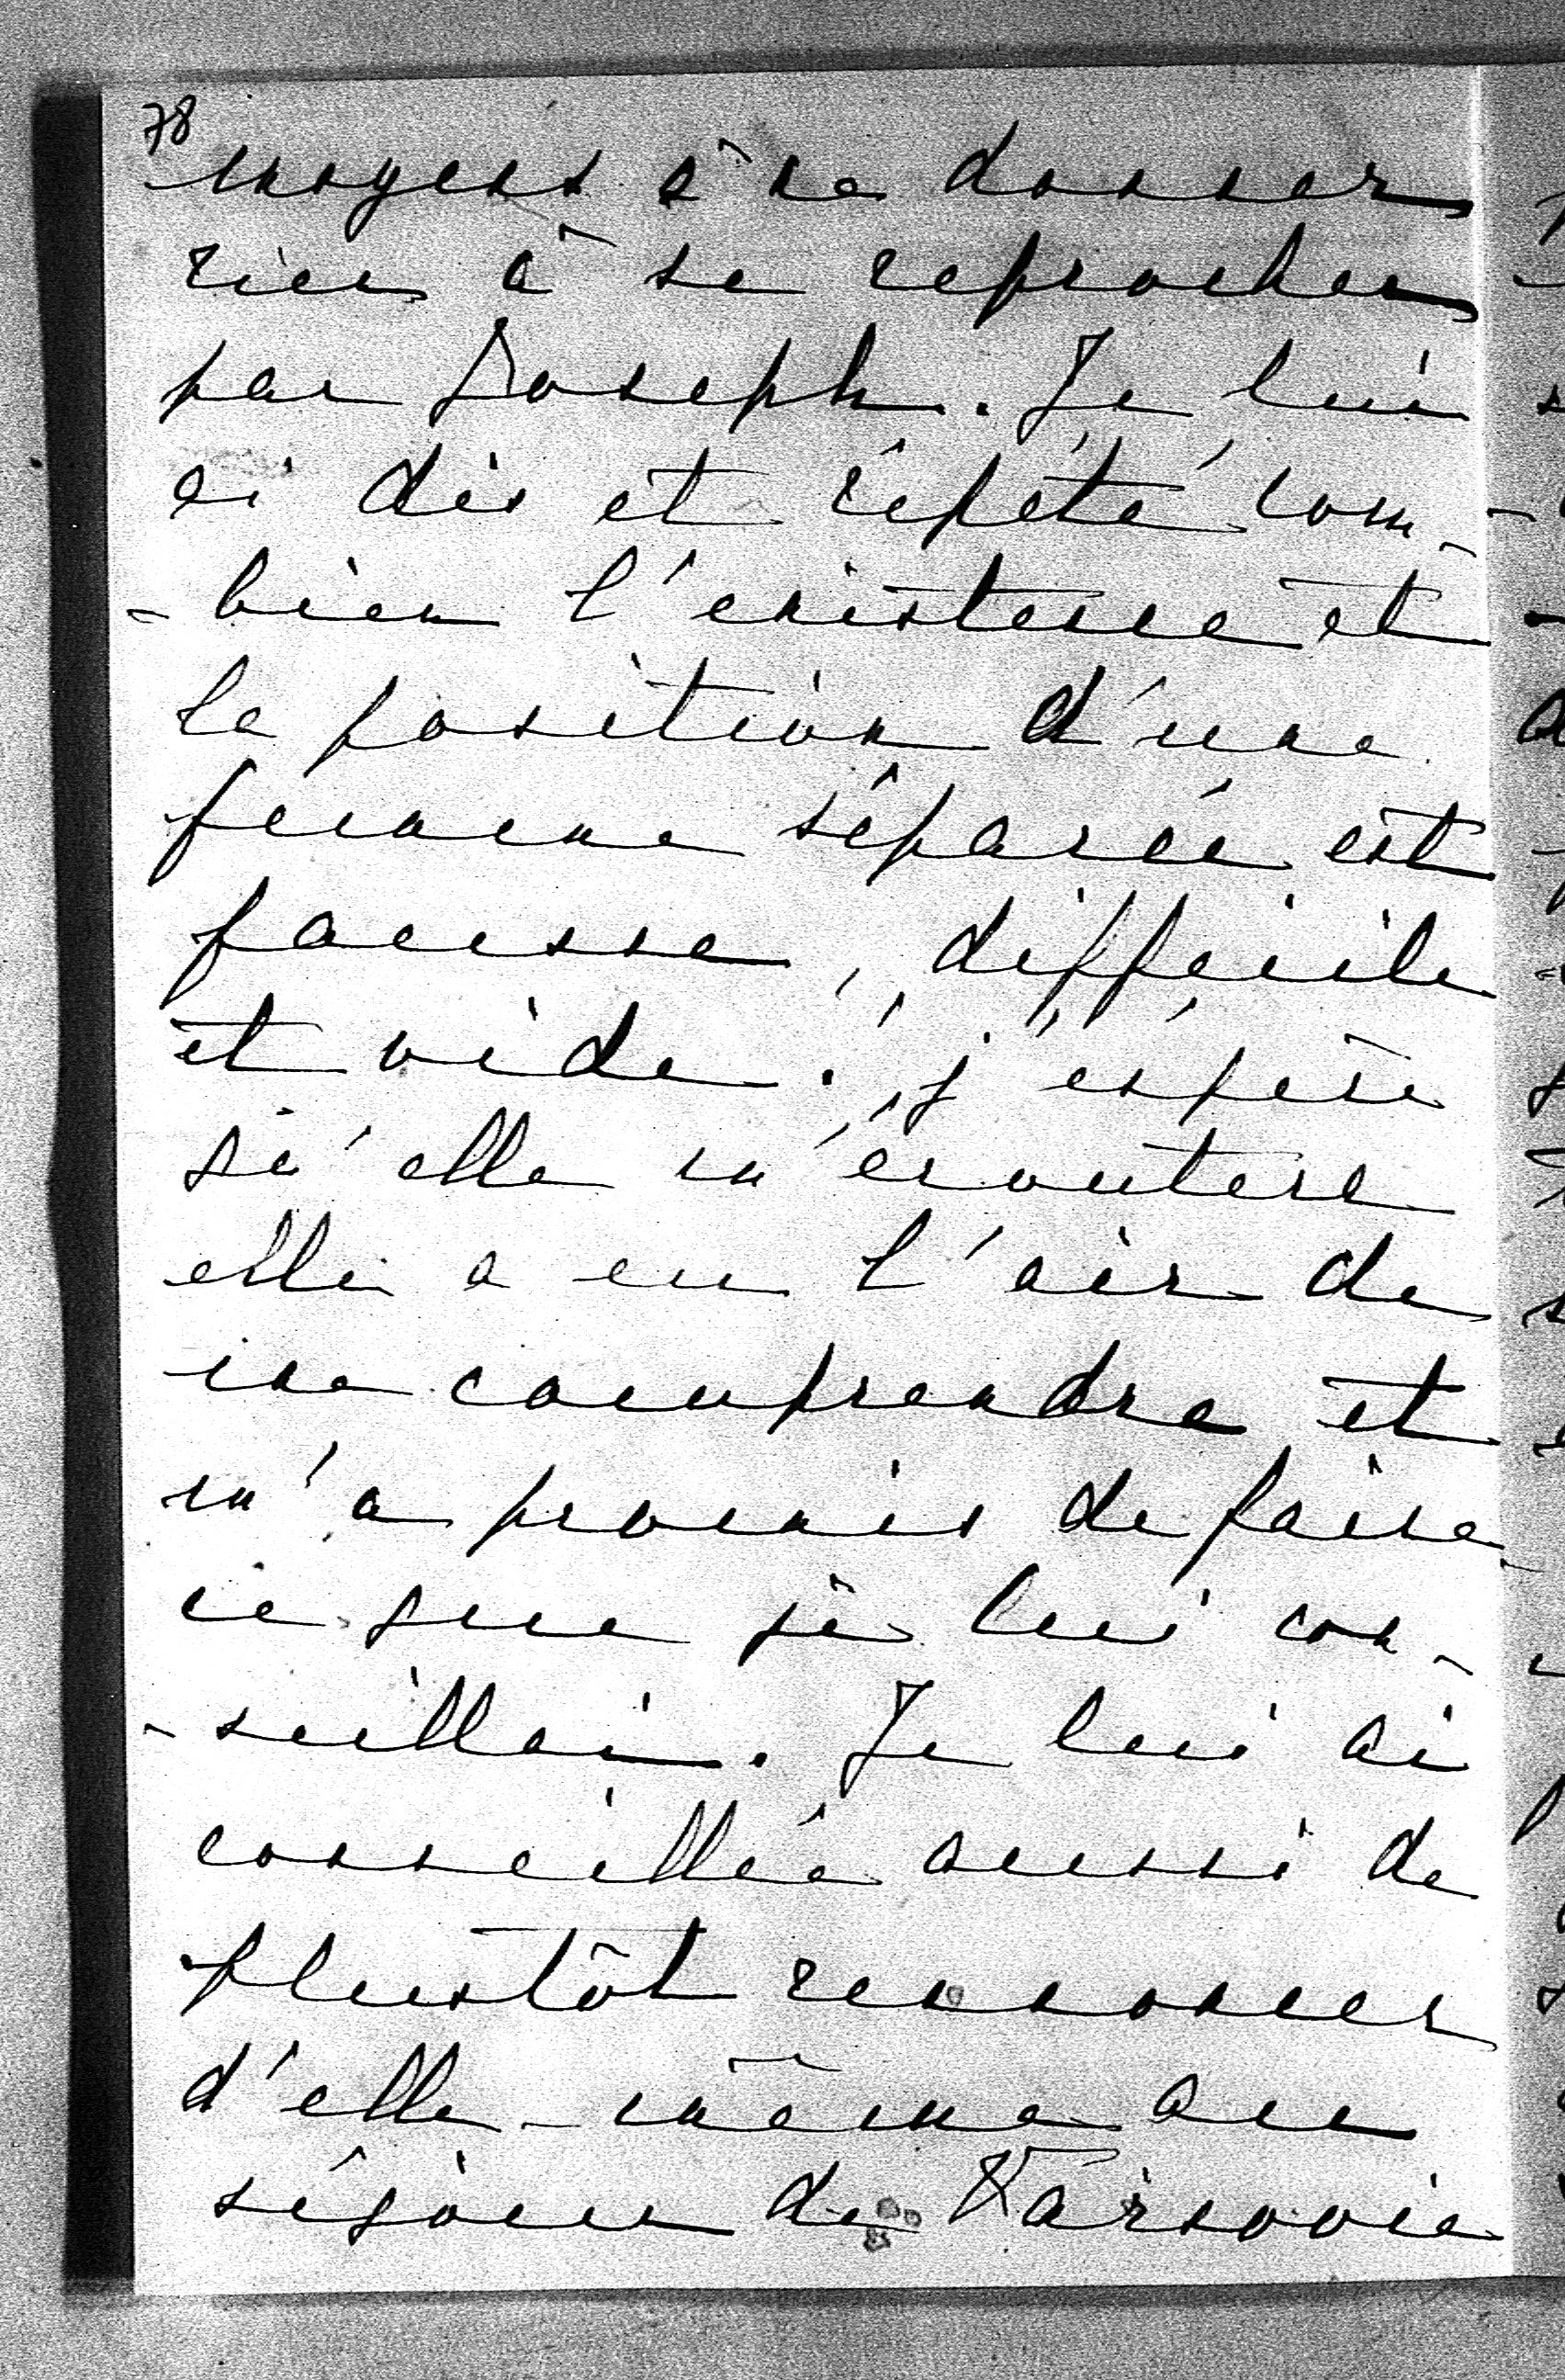 78
moyens à ne donner
rien à se reprocher
par Joseph. Je lui
ai dis et répété com-
-bien l'existence et
la position d'une
femme séparée est
fausse, difficile
et vide. j'espère
qu'elle m'écoutera
elle a eu l'air de
me comprendre et
m'a promis de faire
ce que je lui con-
-seillai. Je lui ai
conseillée aussi de
plustôt renoncer
d'elle-même au
séjour de Varsovie